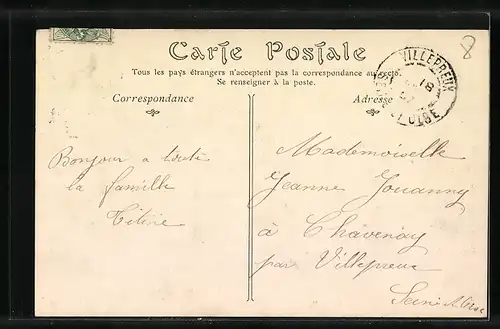 Carte Postale
Tous les pays étrangers n'acceptent pas la correspondance au recto.
Se renseigner à la poste.
Correspondance
Adresse
VILLEPREUX
OISE
8
Bonjour a toute
la famille
Titine
Mademoiselle
Jeanne Jouanny
à Chavenay
par Villepreux
Seine